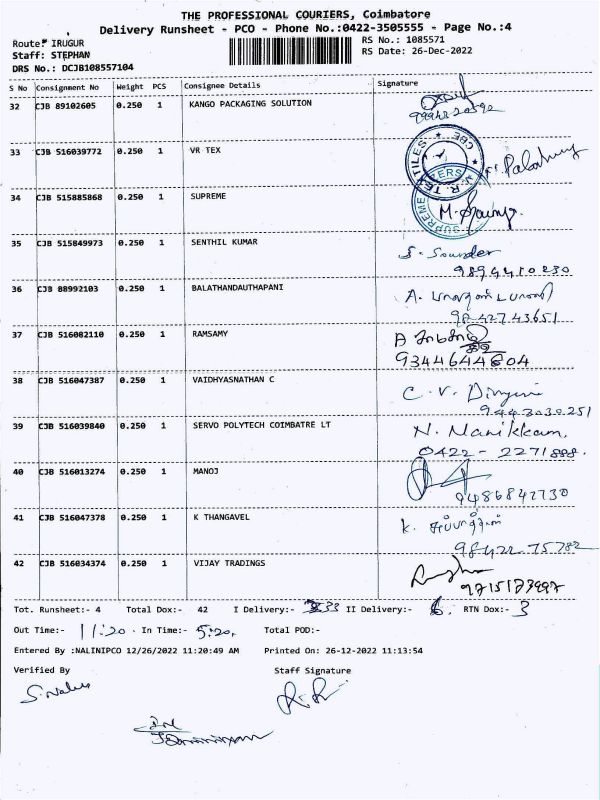 THE PROFESSIONAL COURIERS, Coimbatore
Delivery Runsheet - PCO - Phone No.:0422-3505555 - Page No.:4
Route: IRUGUR
RS No.: 1085571
Staff: STEPHAN
RS Date: 26-Dec-2022
DRS No.: DCJB108557104
S No Consignment No Weight PCS Consignee Details Signature
32 CJB 89102605 0.250 1 KANGO PACKAGING SOLUTION
33 CJB 516039772 0.250 1 VR TEX
34 CJB 515885868 0.250 1 SUPREME
35 CJB 515849973 0.250 1 SENTHIL KUMAR S. Sounder
9894410230
36 CJB 88992103 0.250 1 BALATHANDAUTHAPANI A.
9842743651
37 CJB 516082110 0.250 1 RAMSAMY A
9344644804
38 CJB 516047387 0.250 1 VAIDHYASNATHAN C C. V.
9443030251
39 CJB 516039840 0.250 1 SERVO POLYTECH COIMBATRE LT N. Manikkam.
0422 - 2271888.
40 CJB 516013274 0.250 1 MANOJ
9486842730
41 CJB 516047378 0.250 1 K THANGAVEL K.
98422 75782
42 CJB 516034374 0.250 1 VIJAY TRADINGS
Tot. Runsheet:- 4 Total Dox:- 42 I Delivery:- 33 II Delivery:- 6. RTN Dox:- 3
Out Time:- 11:20 . In Time:- 5:20, Total POD:-
Entered By :NALINIPCO 12/26/2022 11:20:49 AM Printed On: 26-12-2022 11:13:54
Verified By Staff Signature